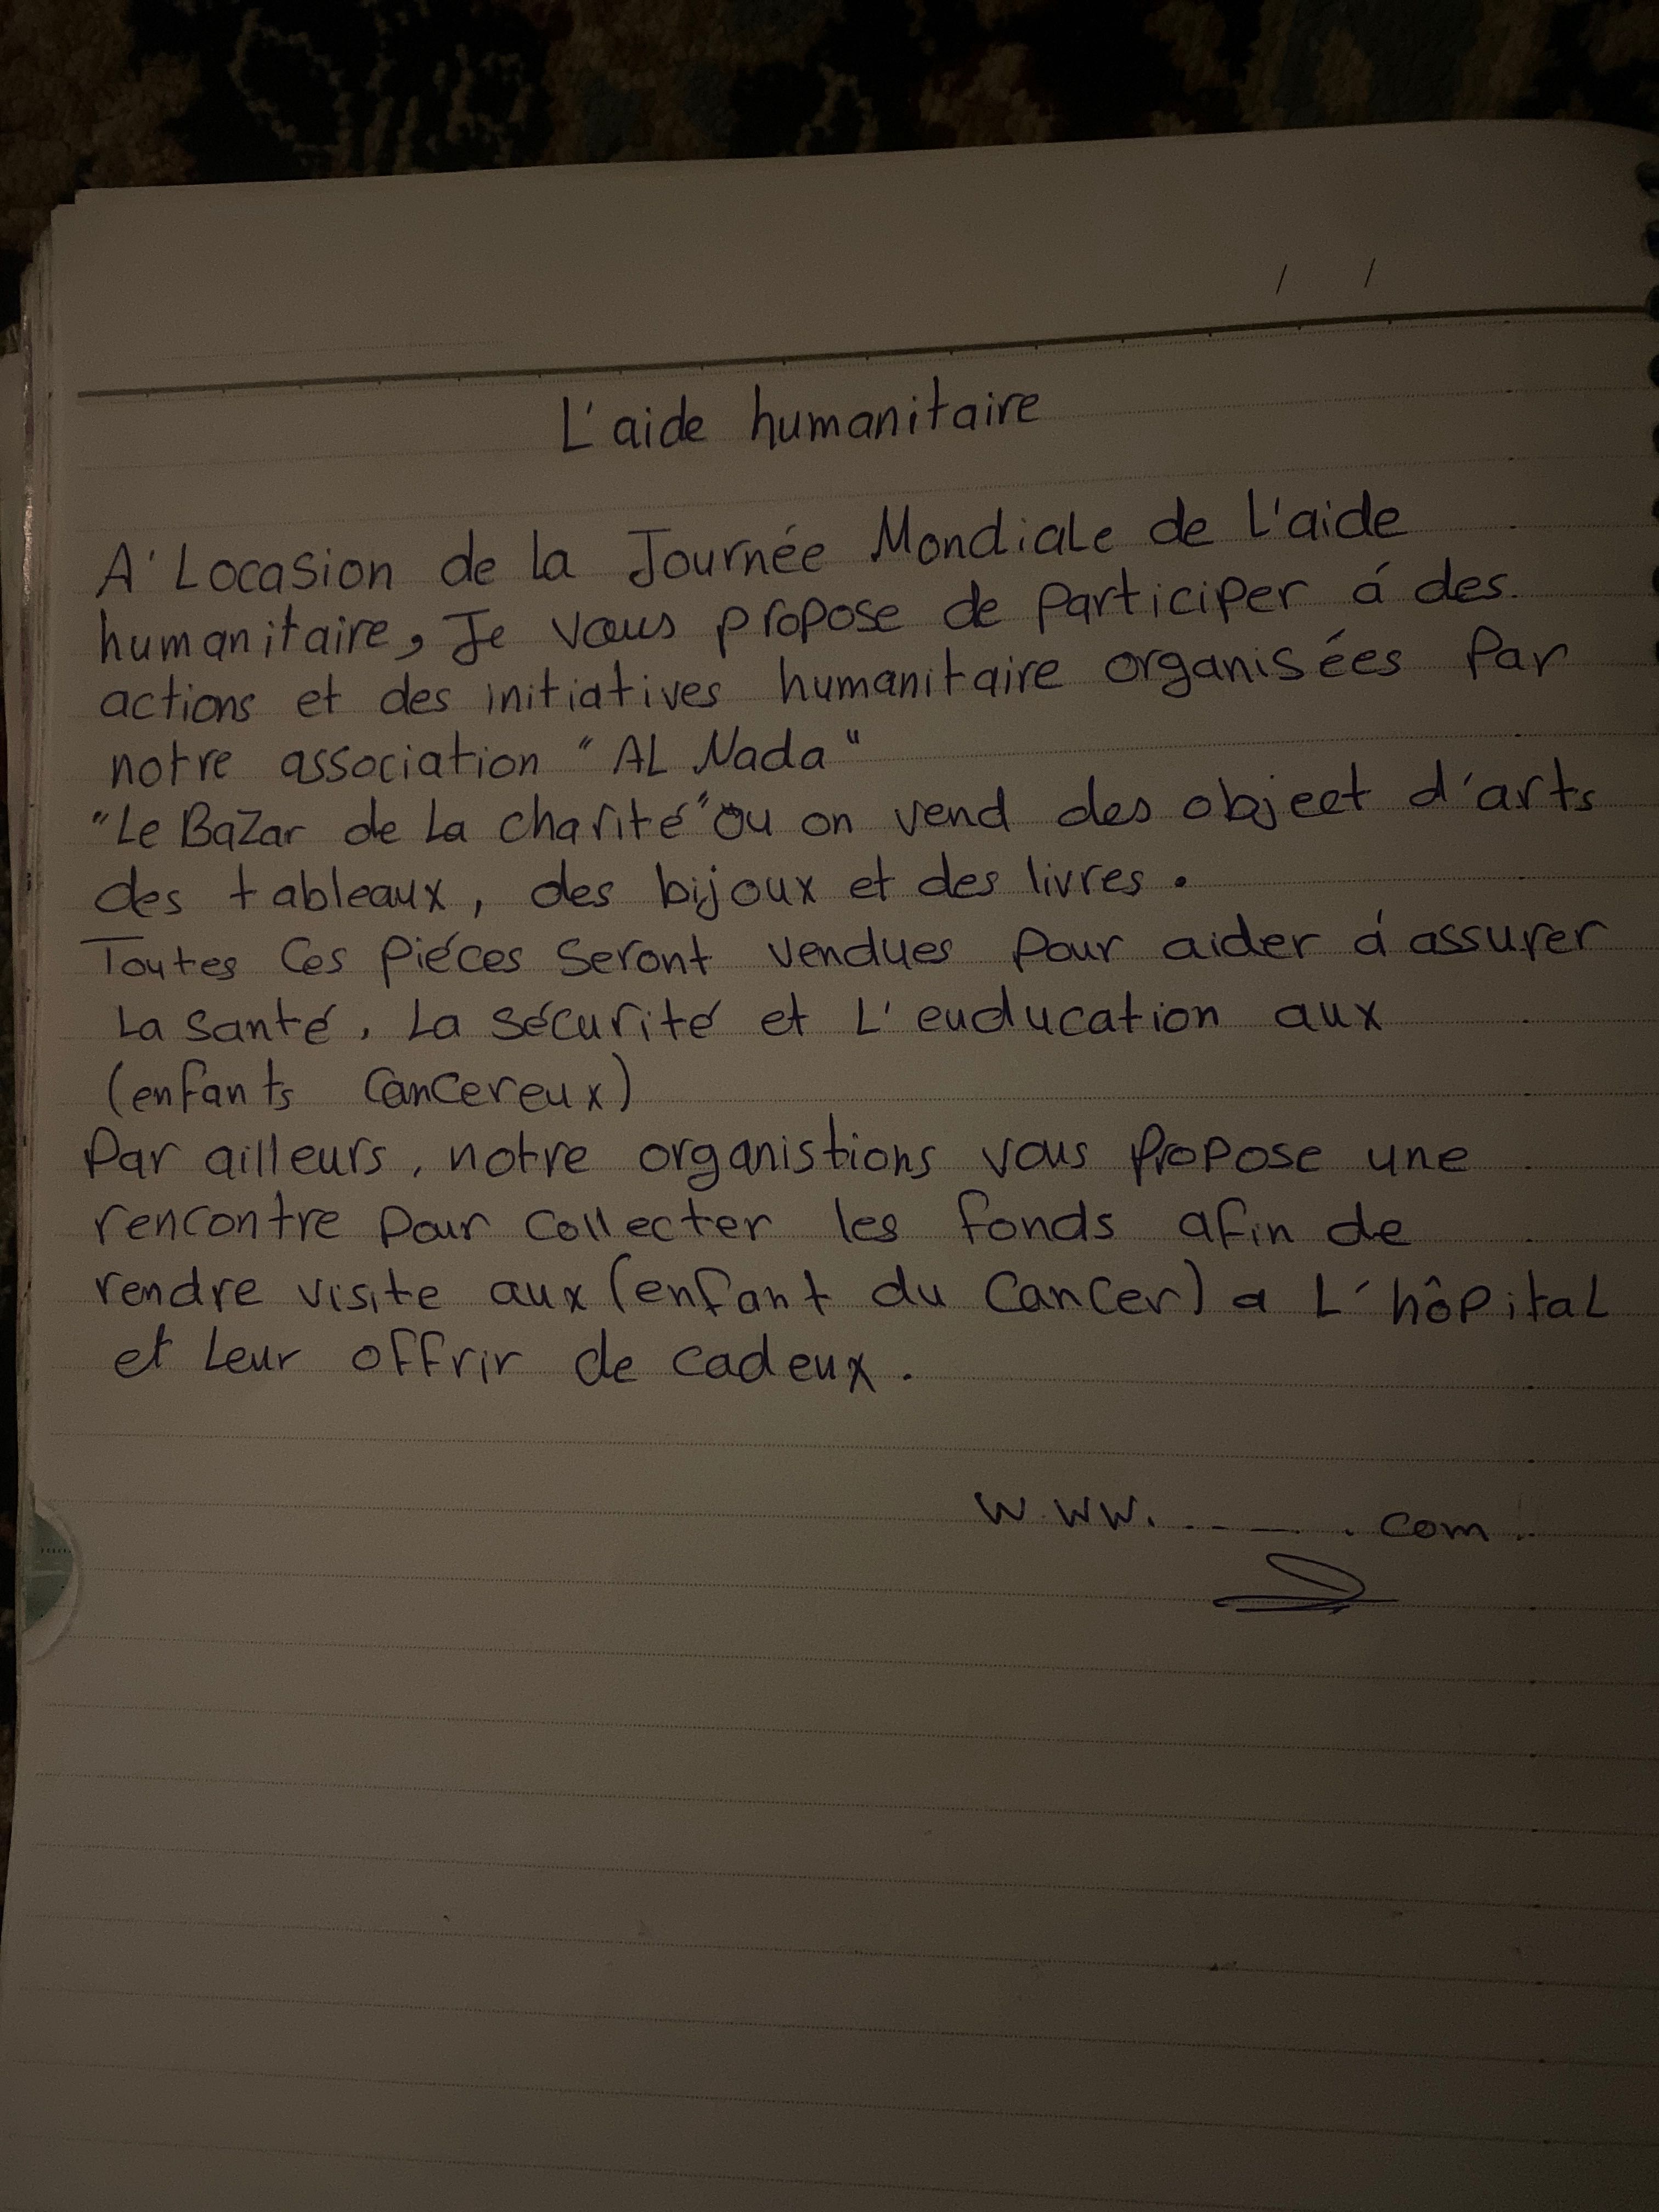 / /
L'aide humanitaire
A' Locasion de la Journée Mondiale de L'aide
humanitaire, Je vous propose de Participer á des.
actions et des initiatives humanitaire organisées Par
notre association "AL Nada"
"Le Bazar de La charité" où on vend des objeet d'arts
des tableaux, des bijoux et des livres.
Toutes Ces Piéces Seront vendues Pour aider á assurer
La santé, La sécurité et L'euducation aux
(enfants Cancereux)
Par ailleurs, notre organistions vous Propose une
rencontre Pour Collecter les fonds afin de
rendre visite aux (enfant du Cancer) a L'hôpital
et Leur offrir de cadeux.
www. ----- . com.